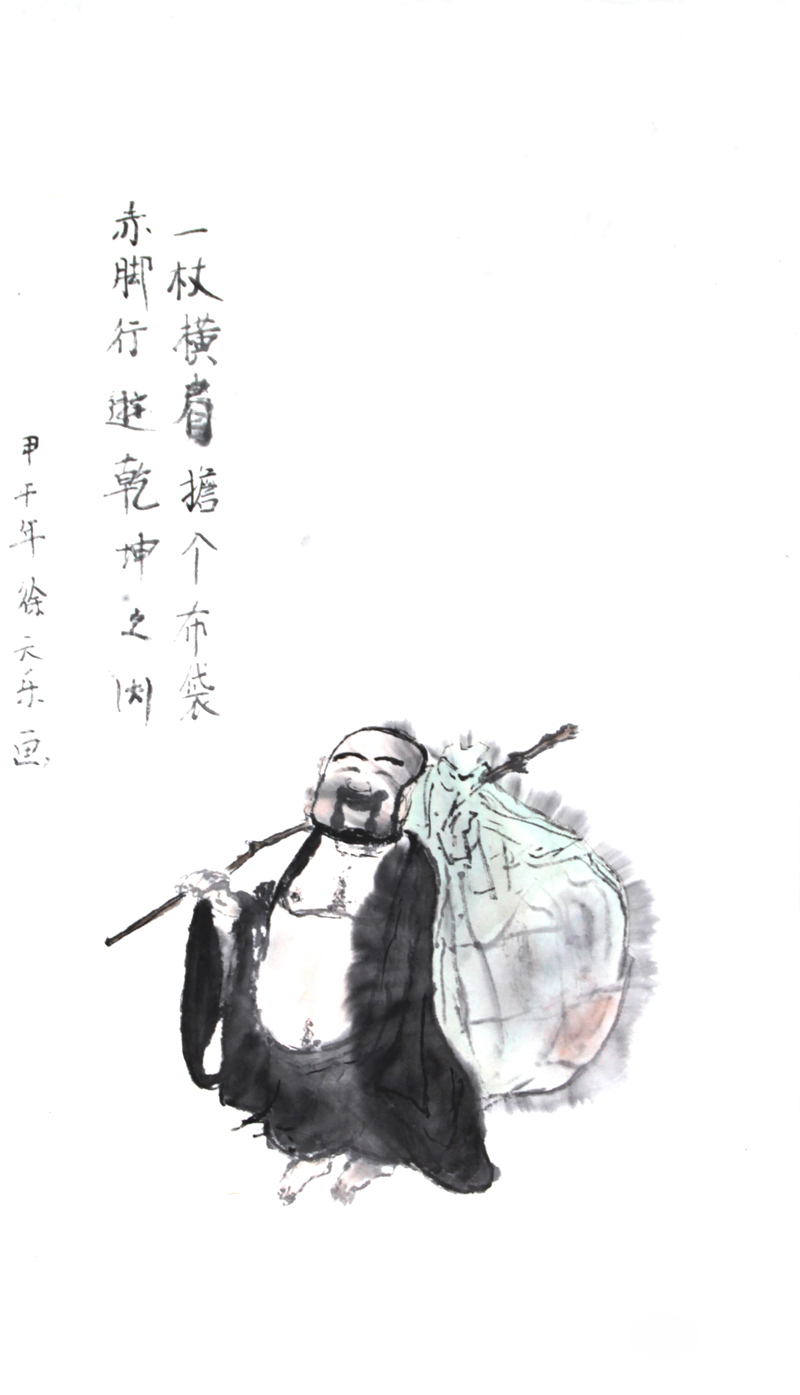 一杖横 擔个布袋
赤脚行遊乾坤之渊
甲午年徐天乐画